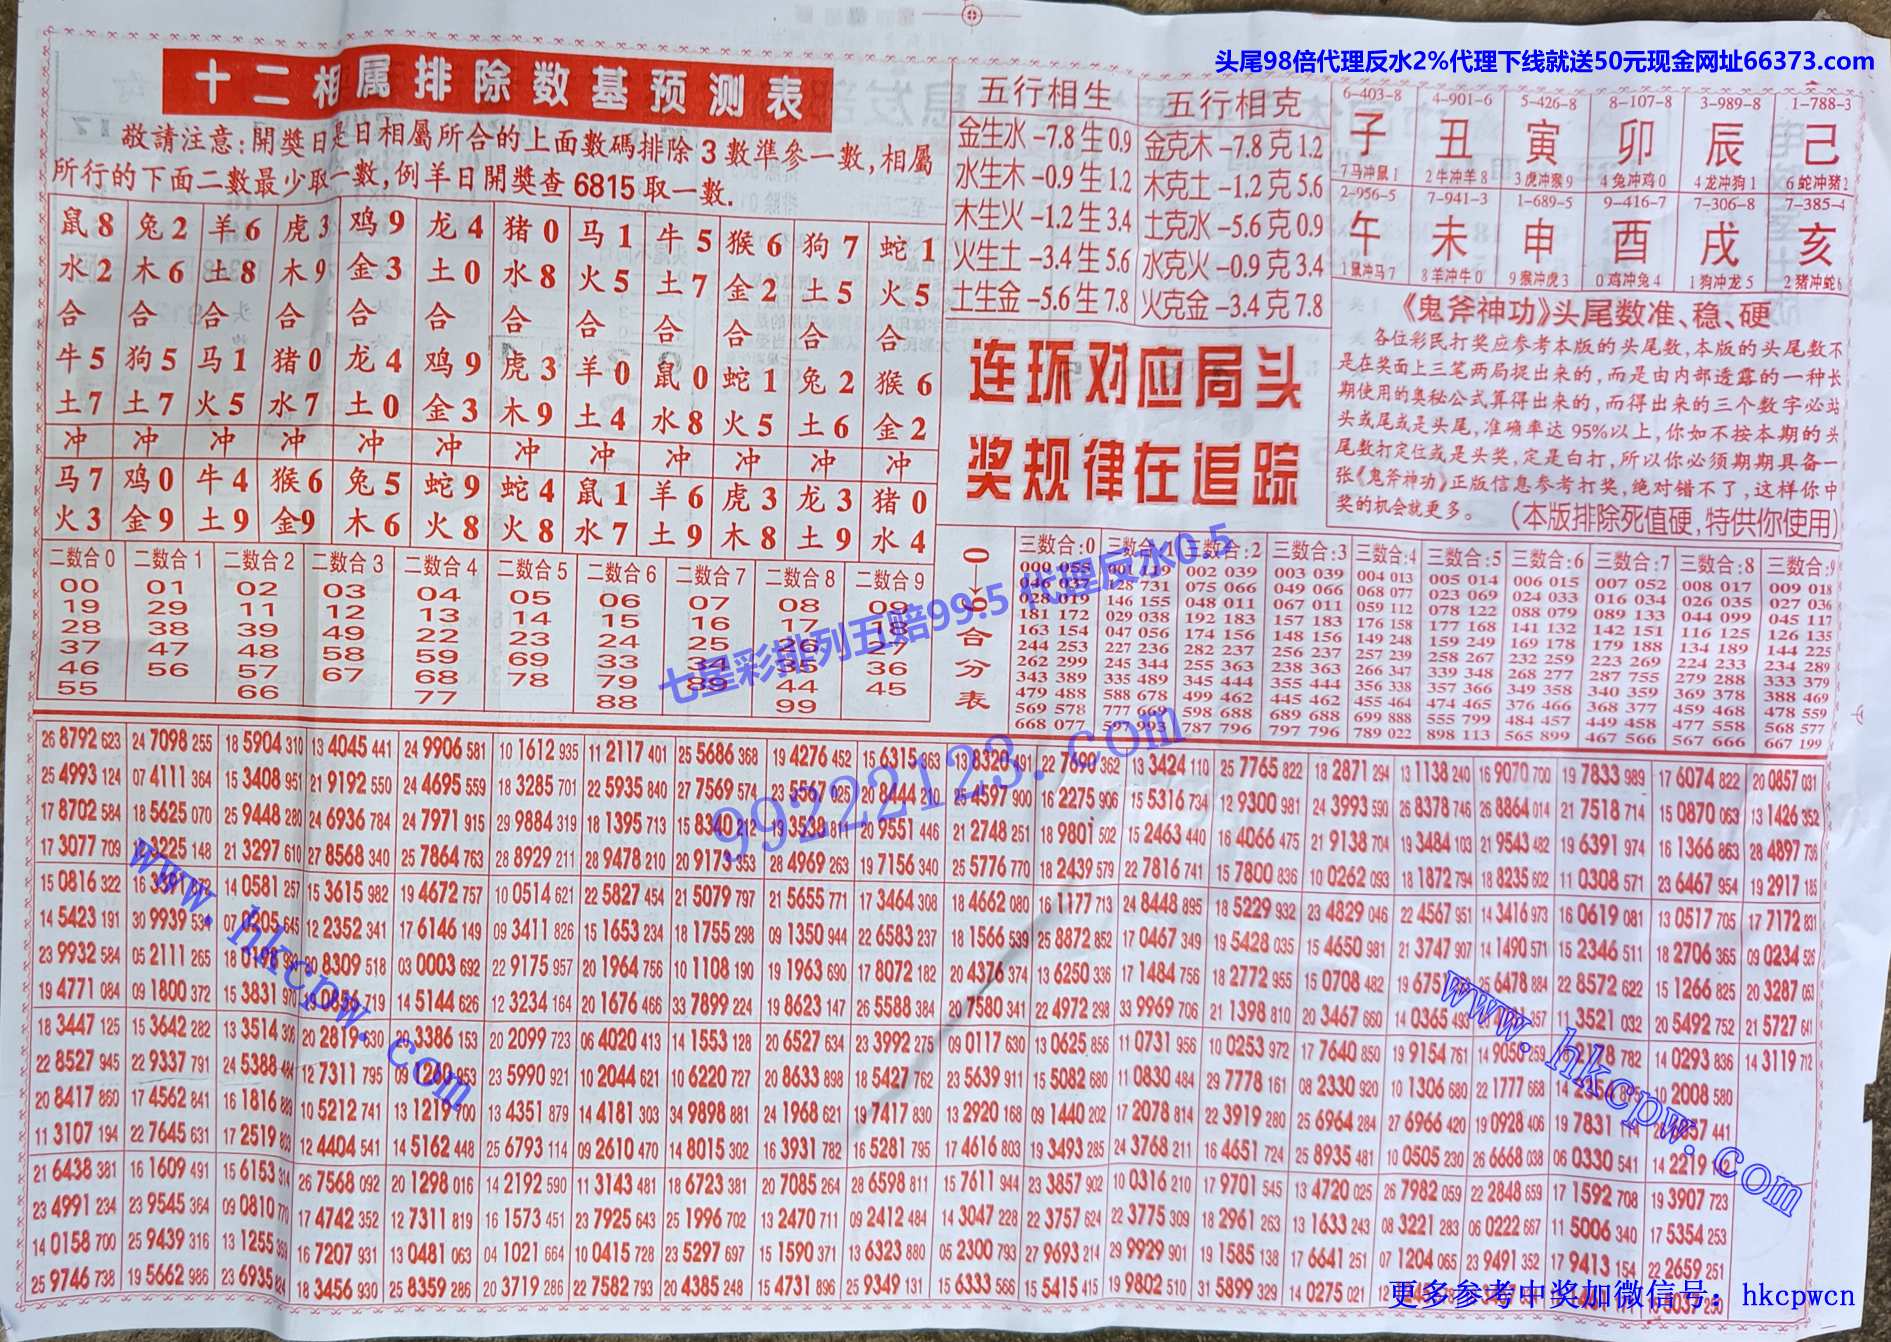 头尾98倍代理反水2%代理下线就送50元现金网址66373.com
十二相属排除数基预测表
敬請注意:開獎日是日相屬所合的上面數碼排除3數準參一數,相屬
所行的下面二數最少取一數,例羊日開獎查6815取一數.
鼠8 兔2 羊6 虎3 鸡9 龙4 猪0 马1 牛5 猴6 狗7 蛇1
水2 木6 土8 木9 金3 土0 水8 火5 土7 金2 土5 火5
合 合 合 合 合 合 合 合 合 合 合 合
牛5 狗5 马1 猪0 龙4 鸡9 虎3 羊0 鼠0 蛇1 兔2 猴6
土7 土7 火5 水7 土0 金3 木9 土4 水8 火5 土6 金2
冲 冲 冲 冲 冲 冲 冲 冲 冲 冲 冲 冲
马7 鸡0 牛4 猴6 兔5 蛇9 蛇4 鼠1 羊6 虎3 龙3 猪0
火3 金9 土9 金9 木6 火8 火8 水7 土9 木8 土9 水4
五行相生
金生水-7.8生0.9
水生木-0.9生1.2
木生火-1.2生3.4
火生土-3.4生5.6
土生金-5.6生7.8
五行相克
金克木-7.8克1.2
木克土-1.2克5.6
土克水-5.6克0.9
水克火-0.9克3.4
火克金-3.4克7.8
6-403-8 4-901-6 5-426-8 8-107-8 3-989-8 1-788-3
子 丑 寅 卯 辰 己
7马冲鼠1 2牛冲羊8 3虎冲猴9 4兔冲鸡0 4龙冲狗1 6蛇冲猪2
2-956-5 7-941-3 1-689-5 9-416-7 7-306-8 7-385-4
午 未 申 酉 戌 亥
1鼠冲马7 8羊冲牛0 9猴冲虎3 0鸡冲兔4 1狗冲龙5 2猪冲蛇6
连环对应局头
奖规律在追踪
《鬼斧神功》头尾数准、稳、硬
各位彩民打奖应参考本版的头尾数,本版的头尾数不
是在奖面上三笔两局捉出来的,而是由内部透露的一种长
期使用的奥秘公式算得出来的,而得出来的三个数字必站
头或尾或是头尾,准确率达95%以上,你如不按本期的头
尾数打定位或是头奖,定是白打,所以你必须期期具备一
张《鬼斧神功》正版信息参考打奖,绝对错不了,这样你中
奖的机会就更多。 (本版排除死值硬,特供你使用)
二数合0 二数合1 二数合2 二数合3 二数合4 二数合5 二数合6 二数合7 二数合8 二数合9
00 01 02 03 04 05 06 07 08 09
19 29 11 12 13 14 15 16 17 18
28 38 39 49 22 23 24 25 26 27
37 47 48 58 59 69 33 34 35 36
46 56 57 67 68 78 79 89 44 45
55 66 77 88 99
0→9合分表
三数合:0 三数合:1 三数合:2 三数合:3 三数合:4 三数合:5 三数合:6 三数合:7 三数合:8 三数合:9
000 055 001 119 002 039 003 039 004 013 005 014 006 015 007 052 008 017 009 018
046 037 128 731 075 066 049 066 068 077 023 069 024 033 016 034 026 035 027 036
028 019 146 155 048 011 067 011 059 112 078 122 088 079 089 133 044 099 045 117
181 172 029 038 192 183 157 183 176 158 177 168 141 132 142 151 116 125 126 135
163 154 047 056 174 156 148 156 149 248 159 249 169 178 179 188 134 189 144 225
244 253 227 236 282 237 256 237 257 239 258 267 232 259 223 269 224 233 234 289
262 299 245 344 255 363 238 363 266 347 339 348 268 277 287 755 279 288 333 379
343 389 335 489 345 444 355 444 356 338 357 366 349 358 340 359 369 378 388 469
479 488 588 678 499 462 445 462 455 464 474 465 376 466 368 377 459 468 478 559
569 578 777 669 598 688 689 688 699 888 555 799 484 457 449 458 477 558 568 577
668 077 597 993 787 796 797 796 789 022 898 113 565 899 467 566 567 666 667 199
七星彩排列五赔99.5 代理反水0.5
99222123.com
26 8792 623 24 7098 255 18 5904 310 13 4045 441 24 9906 581 10 1612 935 11 2117 401 25 5686 368 19 4276 452 15 6315 363 13 8320 491 22 7690 362 13 3424 110 25 7765 822 18 2871 294 13 1138 240 16 9070 700 19 7833 989 17 6074 822 20 0857 031
25 4993 124 07 4111 364 15 3408 951 21 9192 550 24 4695 559 18 3285 701 22 5935 840 27 7569 574 23 5567 025 20 8444 210 25 4597 900 16 2275 906 15 5316 734 12 9300 981 24 3993 590 26 8378 746 26 8864 014 21 7518 714 15 0870 063 13 1426 352
17 8702 584 18 5625 070 25 9448 280 24 6936 784 24 7971 915 29 9884 319 18 1395 713 15 8340 212 19 3538 811 20 9551 446 21 2748 251 18 9801 502 15 2463 440 16 4066 475 21 9138 704 19 3484 103 21 9543 482 19 6391 974 16 1366 863 28 4897 736
17 3077 709 3225 148 21 3297 610 27 8568 340 25 7864 763 28 8929 211 28 9478 210 20 9173 353 28 4969 263 19 7156 340 25 5776 770 18 2439 579 22 7816 741 15 7800 836 10 0262 093 18 1872 794 18 8235 602 11 0308 571 23 6467 954 19 2917 185
15 0816 322 14 0581 257 15 3615 982 19 4672 757 10 0514 621 22 5827 454 21 5079 797 21 5655 771 17 3464 308 18 4662 080 16 1177 713 24 8448 895 18 5229 932 23 4829 046 22 4567 951 14 3416 973 16 0619 081 13 0517 705 17 7172 831
14 5423 191 30 9939 07 0905 645 12 2352 341 17 6146 149 09 3411 826 15 1653 234 18 1755 298 09 1350 944 22 6583 237 18 1566 599 25 8872 852 17 0467 349 19 5428 035 15 4650 981 21 3747 907 14 1490 571 15 2346 511 18 2706 365 09 0234 526
23 9932 584 05 2111 265 18 0198 20 8309 518 03 0003 692 22 9175 957 20 1964 756 10 1108 190 19 1963 690 17 8072 182 20 4376 374 13 6250 336 17 1484 756 18 2772 955 15 0708 482 19 675 25 6478 884 22 8572 622 15 1266 825 20 3287 063
19 4771 084 09 1800 372 15 3831 970 0856 719 14 5144 626 12 3234 164 20 1676 466 33 7899 224 19 8623 147 26 5588 384 20 7580 341 22 4972 298 33 9969 706 21 1398 810 20 3467 660 14 0365 493 11 3521 032 20 5492 752 21 5727 641
18 3447 125 15 3642 282 13 3514 306 20 2819 630 20 3386 153 20 2099 723 06 4020 413 14 1553 128 20 6527 634 23 3992 275 09 0117 630 13 0625 856 11 0731 956 10 0253 972 17 7640 850 19 9154 761 14 9059 259 782 14 0293 836 14 3119 712
22 8527 945 22 9337 791 24 5388 484 12 7311 795 09 1268 953 23 5990 921 10 2044 621 10 6220 727 20 8633 898 18 5427 762 23 5639 911 15 5082 680 11 0830 484 29 7778 161 08 2330 920 10 1306 680 22 1777 668 14 2254 895 10 2008 580
20 8417 860 17 4562 841 16 1816 10 5212 741 13 1219 700 13 4351 879 14 4181 303 34 9898 881 24 1968 621 19 7417 830 13 2920 168 09 1440 202 17 2078 814 22 3919 280 25 6964 284 27 6966 420 19 0928 406 19 7831 114 441
11 3107 194 22 7645 631 17 2519 803 12 4404 541 14 5162 448 25 6793 114 09 2610 470 14 8015 302 16 3931 782 16 5281 795 17 4616 803 19 3493 285 24 3768 211 16 4651 724 25 8935 481 10 0505 230 26 6668 038 06 0330 541 14 2219
21 6438 381 16 1609 491 15 6153 314 26 7568 092 20 1298 016 14 2192 590 11 3143 481 18 6723 381 20 7085 264 28 6598 811 15 7611 944 23 3857 902 10 0316 210 17 9701 545 13 4720 025 26 7982 059 22 2848 659 17 1592 708 19 3907 723
23 4991 234 23 9545 364 09 0810 770 17 4742 352 12 7311 819 16 1573 451 23 7925 643 25 1996 702 13 2470 711 09 2412 484 14 3047 228 22 3757 624 22 3775 309 18 2961 263 13 1633 243 08 3221 283 06 0222 667 11 5006 340 17 5354 253
14 0158 700 25 9439 316 13 1255 16 7207 931 13 0481 063 04 1021 664 10 0415 728 23 5297 697 15 1590 371 13 6323 880 05 2300 793 27 9693 214 29 9929 901 19 1585 138 17 6641 251 07 1204 065 23 9491 352 17 9413 154 22 2659 251
25 9746 738 19 5662 986 23 6935 824 18 3456 930 25 8359 286 20 3719 286 22 7582 793 20 4385 248 15 4731 896 25 9349 131 15 6333 566 15 5415 415 19 9802 510 31 5899 329 14 0275 021
www.hkcpw.com
www.hkcpw.com
更多参考中奖加微信号: hkcpwcn